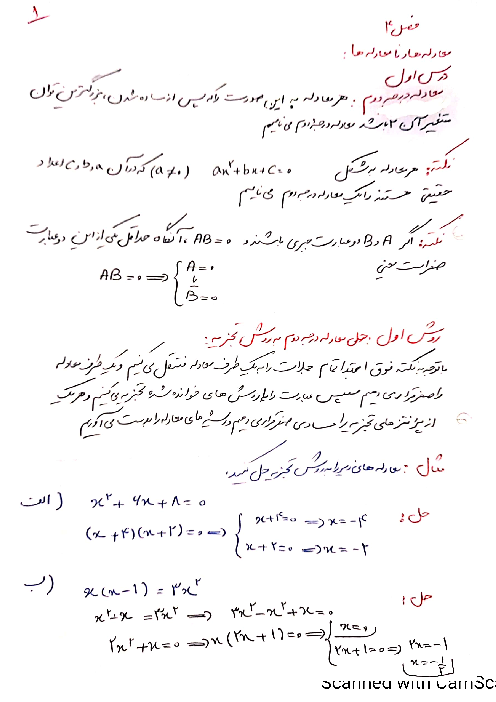 ۱
فصل ۴
معادله‌ها و نامعادله‌ها:
درس اول
معادله درجه دوم: هر معادله به این صورت که پس از ساده شدن، بزرگترین توان
متغیر آن ۲ باشد معادله درجه دوم می‌نامیم
نکته: هر معادله به شکل ax²+bx+c=۰ (a≠۰) که در آن a و b و c اعداد
حقیقی هستند را یک معادله درجه دوم می‌نامیم
نکته: اگر A و B دو عبارت جبری باشند و AB=۰، آنگاه حداقل یکی از این دو عبارت
صفر است یعنی
AB=۰ ⟹ { A=۰
یا
B=۰
روش اول: حل معادله درجه دوم به روش تجزیه:
با توجه به نکته فوق ابتدا تمام جملات را به یک طرف معادله منتقل می‌کنیم و یک طرف معادله
را صفر قرار می‌دهیم سپس عبارت را با روش‌های خوانده شده تجزیه می‌کنیم و هر یک
از پرانتزهای تجزیه را مساوی صفر قرار می‌دهیم و ریشه‌های معادله را بدست می‌آوریم
مثال: معادله‌های زیر را به روش تجزیه حل کنید.
الف) x²+۶x+۸=۰
حل: (x+۴)(x+۲)=۰ ⟹ { x+۴=۰ ⟹ x=-۴
x+۲=۰ ⟹ x=-۲
ب) x(x-۱)=۳x²
حل:
x²+x=۳x² ⟹ ۳x²-x²+x=۰
۲x²+x=۰ ⟹ x(۲x+۱)=۰ ⟹ { x=۰
۲x+۱=۰ ⟹ ۲x=-۱
x=-۱/۲
Scanned with CamSca